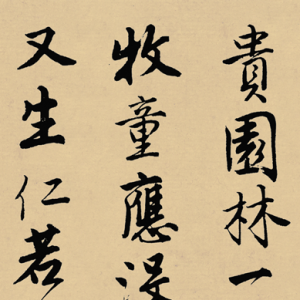 貴園林一
牧童應没
又生仁若